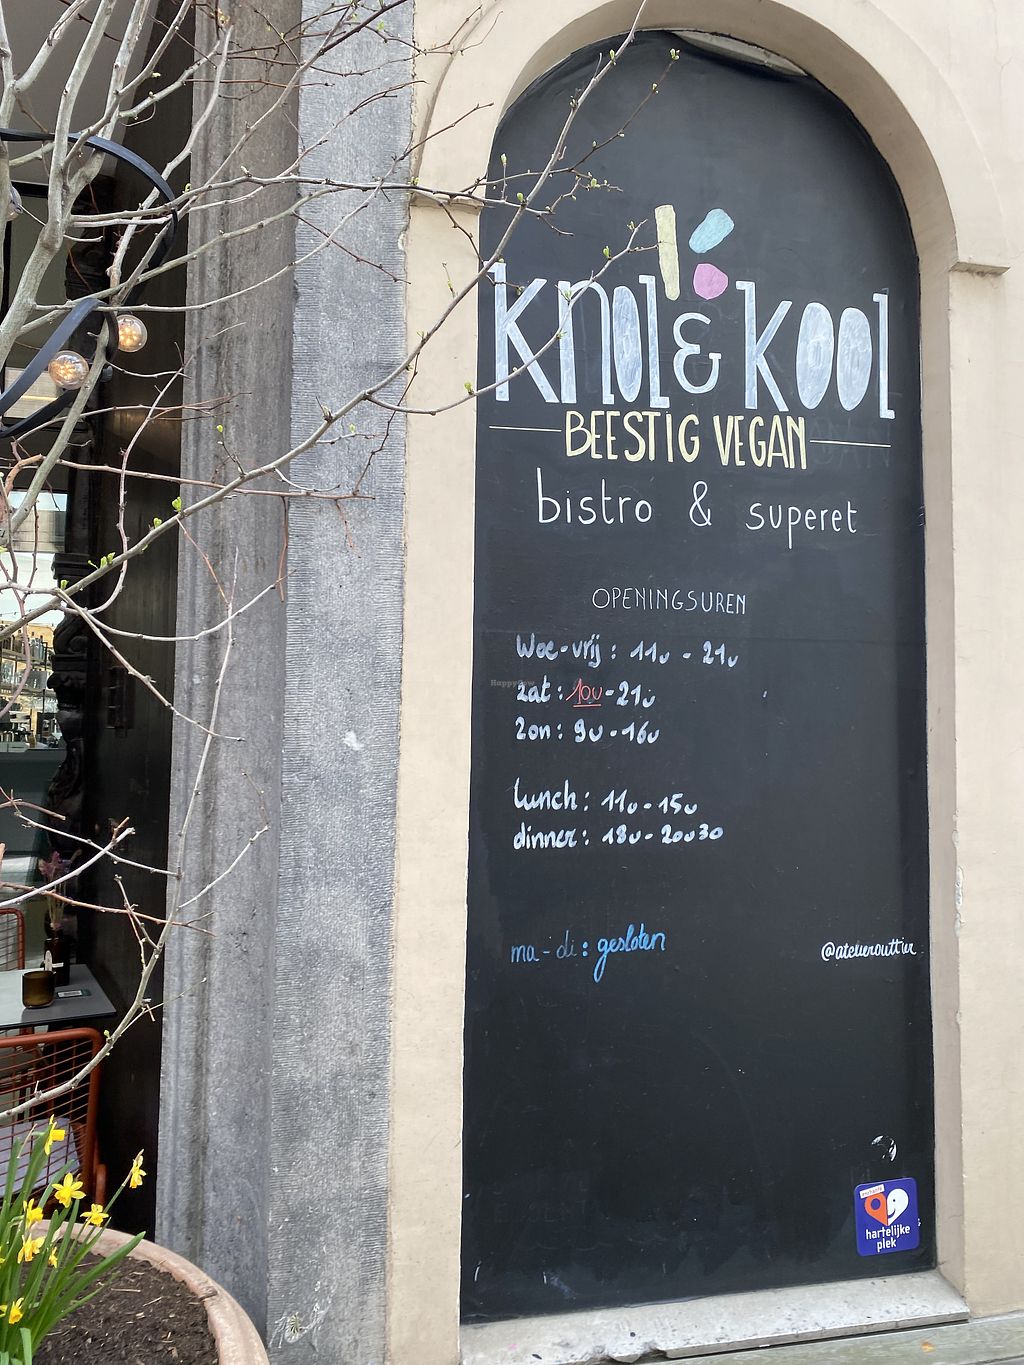 knol & kool
BEESTIG VEGAN
bistro & superet
OPENINGSUREN
Woe-vrij: 11u - 21u
zat: 10u-21u
Zon: 9u-16u
lunch: 11u-15u
dinner: 18u-20u30
ma-di: gesloten
@atelierouttier
HappyCow
hartelijke
plek